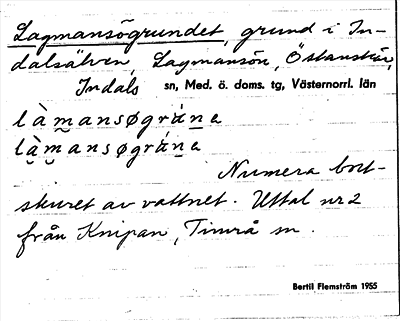 Lagmansögrundet, grund i In-
dalsälven, Lagmansön, Östanskär,
Indals sn, Med. ö. doms. tg, Västernorrl. län
làmansøgrána
làmansøgrána
Numera bort-
skuret av vattnet. Uttal nr 2
från Knipan, Timrå sn.
Bertil Flemström 1955